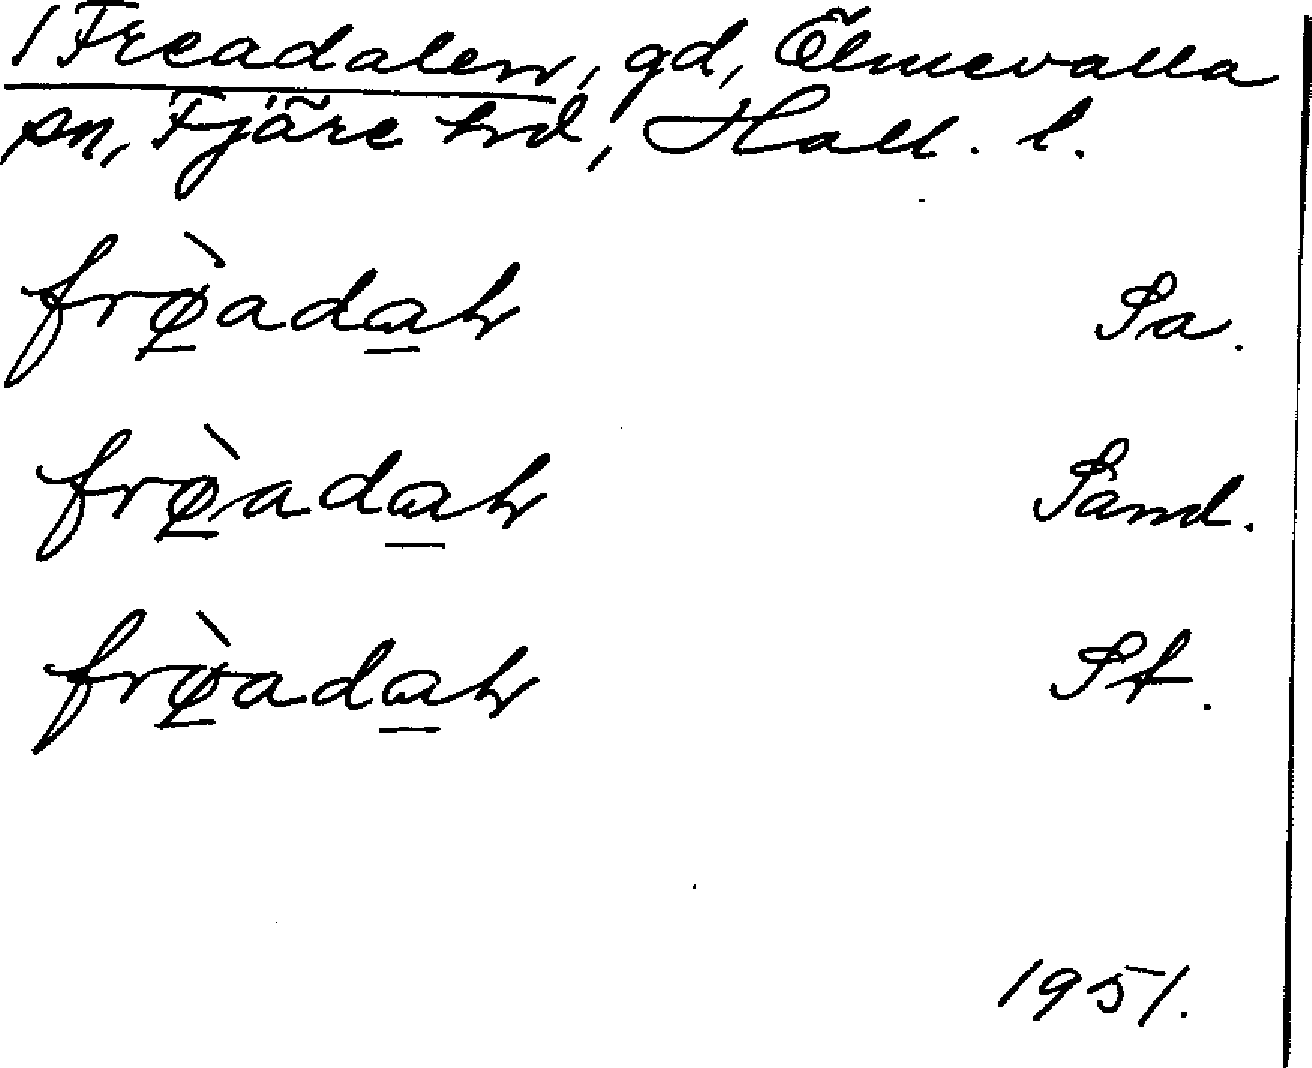 /Freadalen, gd, Ölmevalla
sn, Fjäre hd, Hall. l.
frø̀adah Sa.
frø̀adah Sand.
frø̀adah St.
1951.